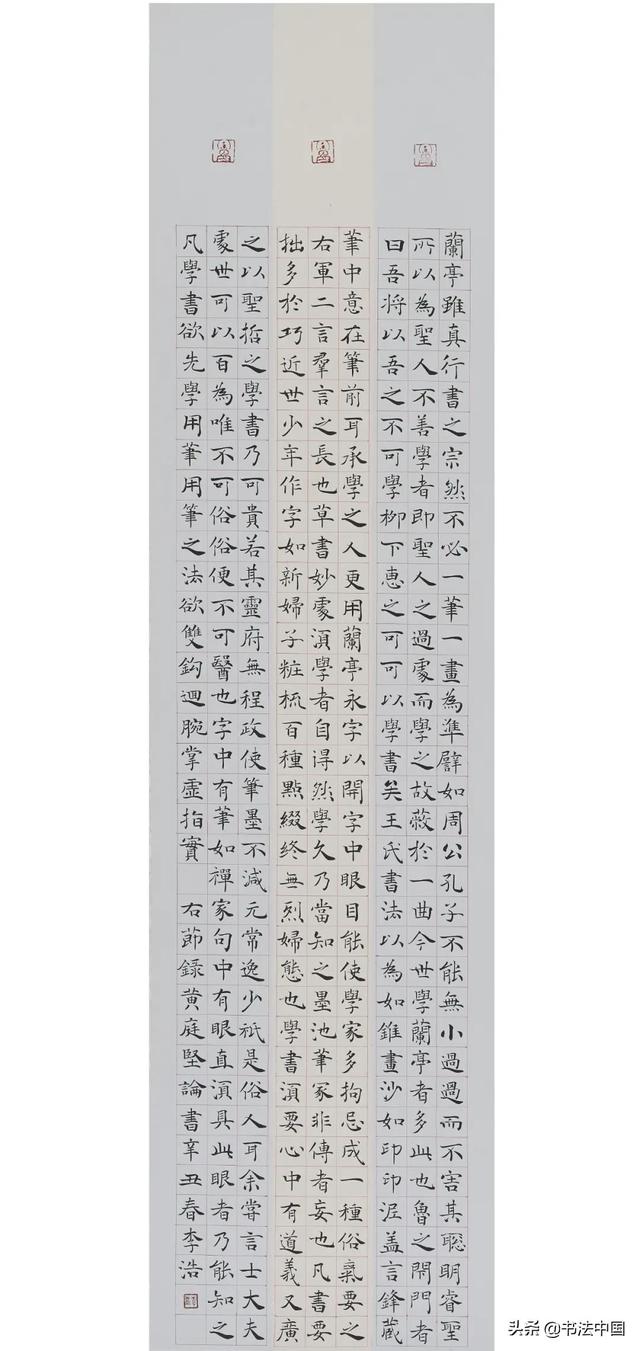 蘭亭雖真行書之宗然不必一筆一畫為準譬如周公孔子不能無小過過而不害其聰明睿聖
所以為聖人不善學者即聖人之過處而學之故蔽於一曲今世學蘭亭者多此也魯之閇門者
曰吾將以吾之不可學柳下惠之可可以學書矣王氏書法以為如錐畫沙如印印泥蓋言鋒藏
筆中意在筆前耳承學之人更用蘭亭永字以開字中眼目能使學家多拘忌成一種俗氣要之
右軍二言羣言之長也草書妙處湏學者自得然學久乃當知之墨池筆冢非傳者妄也凡書要
拙多於巧近世少年作字如新婦子粧梳百種點綴終無烈婦態也學書湏要心中有道義又廣
之以聖哲之學書乃可貴若其靈府無程政使筆墨不減元常逸少祇是俗人耳余嘗言士大夫
處世可以百為唯不可俗俗便不可醫也字中有筆如禪家句中有眼直湏具此眼者乃能知之
凡學書欲先學用筆用筆之法欲雙鈎迴腕掌虛指實 右節錄黄庭堅論書辛丑春李浩
头条 @书法中国